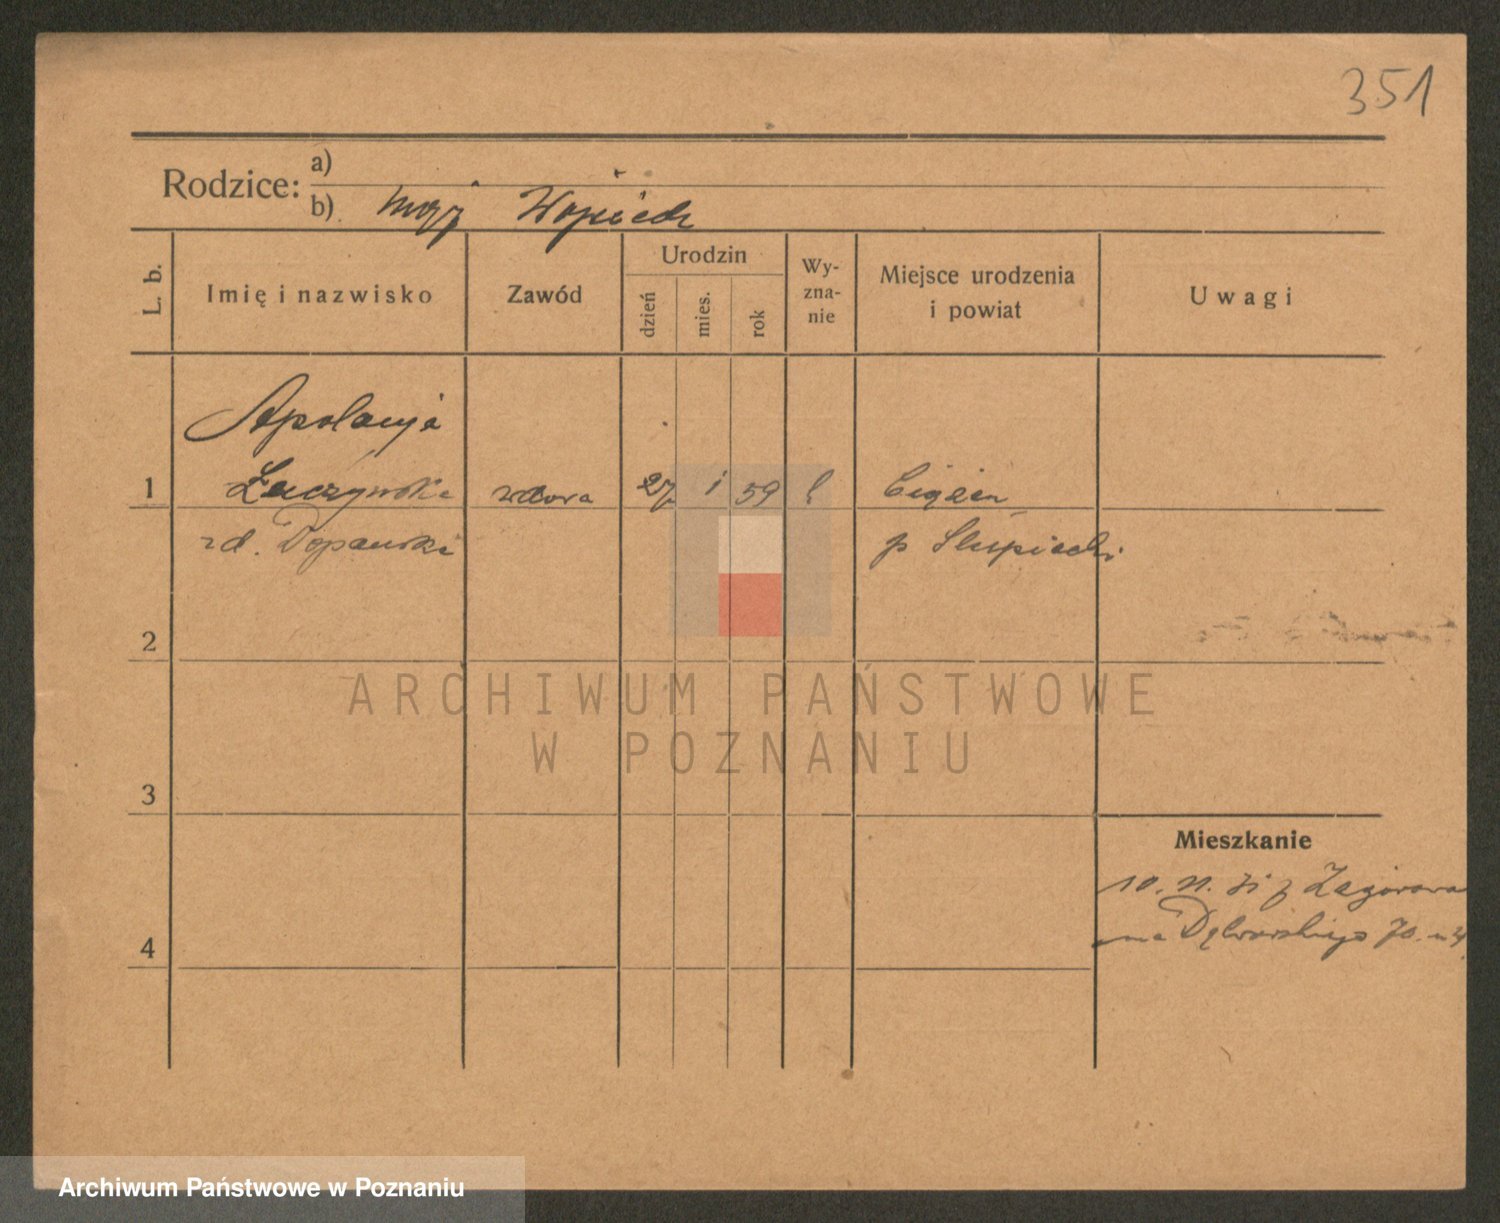 351
Rodzice: a)
b) mąż Wojciech
L. b.
Imię i nazwisko
Zawód
Urodzin
dzień
mies.
rok
Wy-
zna-
nie
Miejsce urodzenia
i powiat
Uwagi
Apolonja
1 Łuczywska wdowa 27 1 59 Ciążeń
zd. p Słupiecki
2
ARCHIWUM PAŃSTWOWE
W POZNANIU
3
Mieszkanie
10. 11. z Zagórowa
4 na Dąbrowskiego 70.
Archiwum Państwowe w Poznaniu